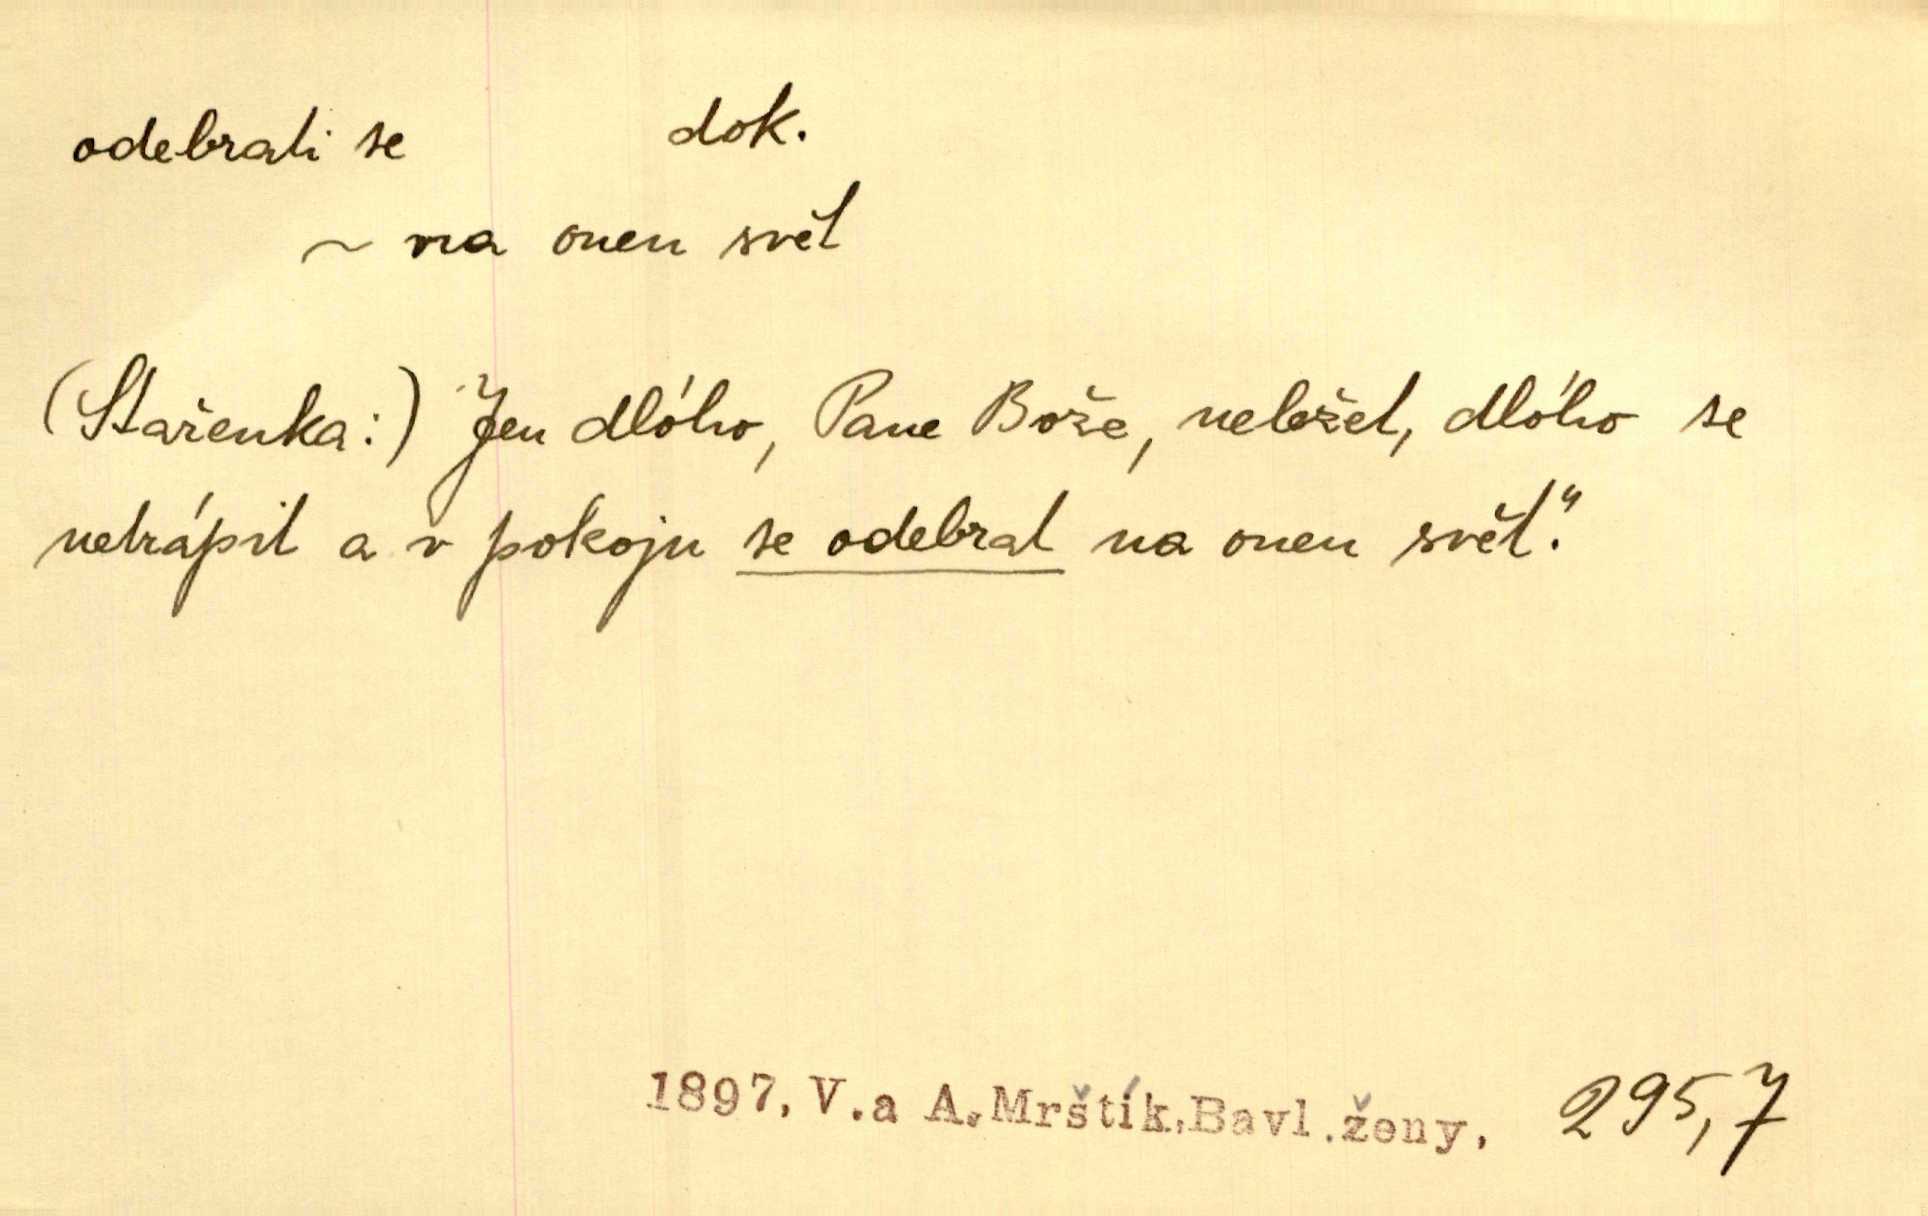 odebrati se dok.
~ na onen svět
(Stařenka:) Jen dlóho, Pane Bože, neležet, dlóho se
netrápit a v pokoju se odebrat na onen svět."
1897, V.a A.Mrštík,Bavl.ženy, 295,7